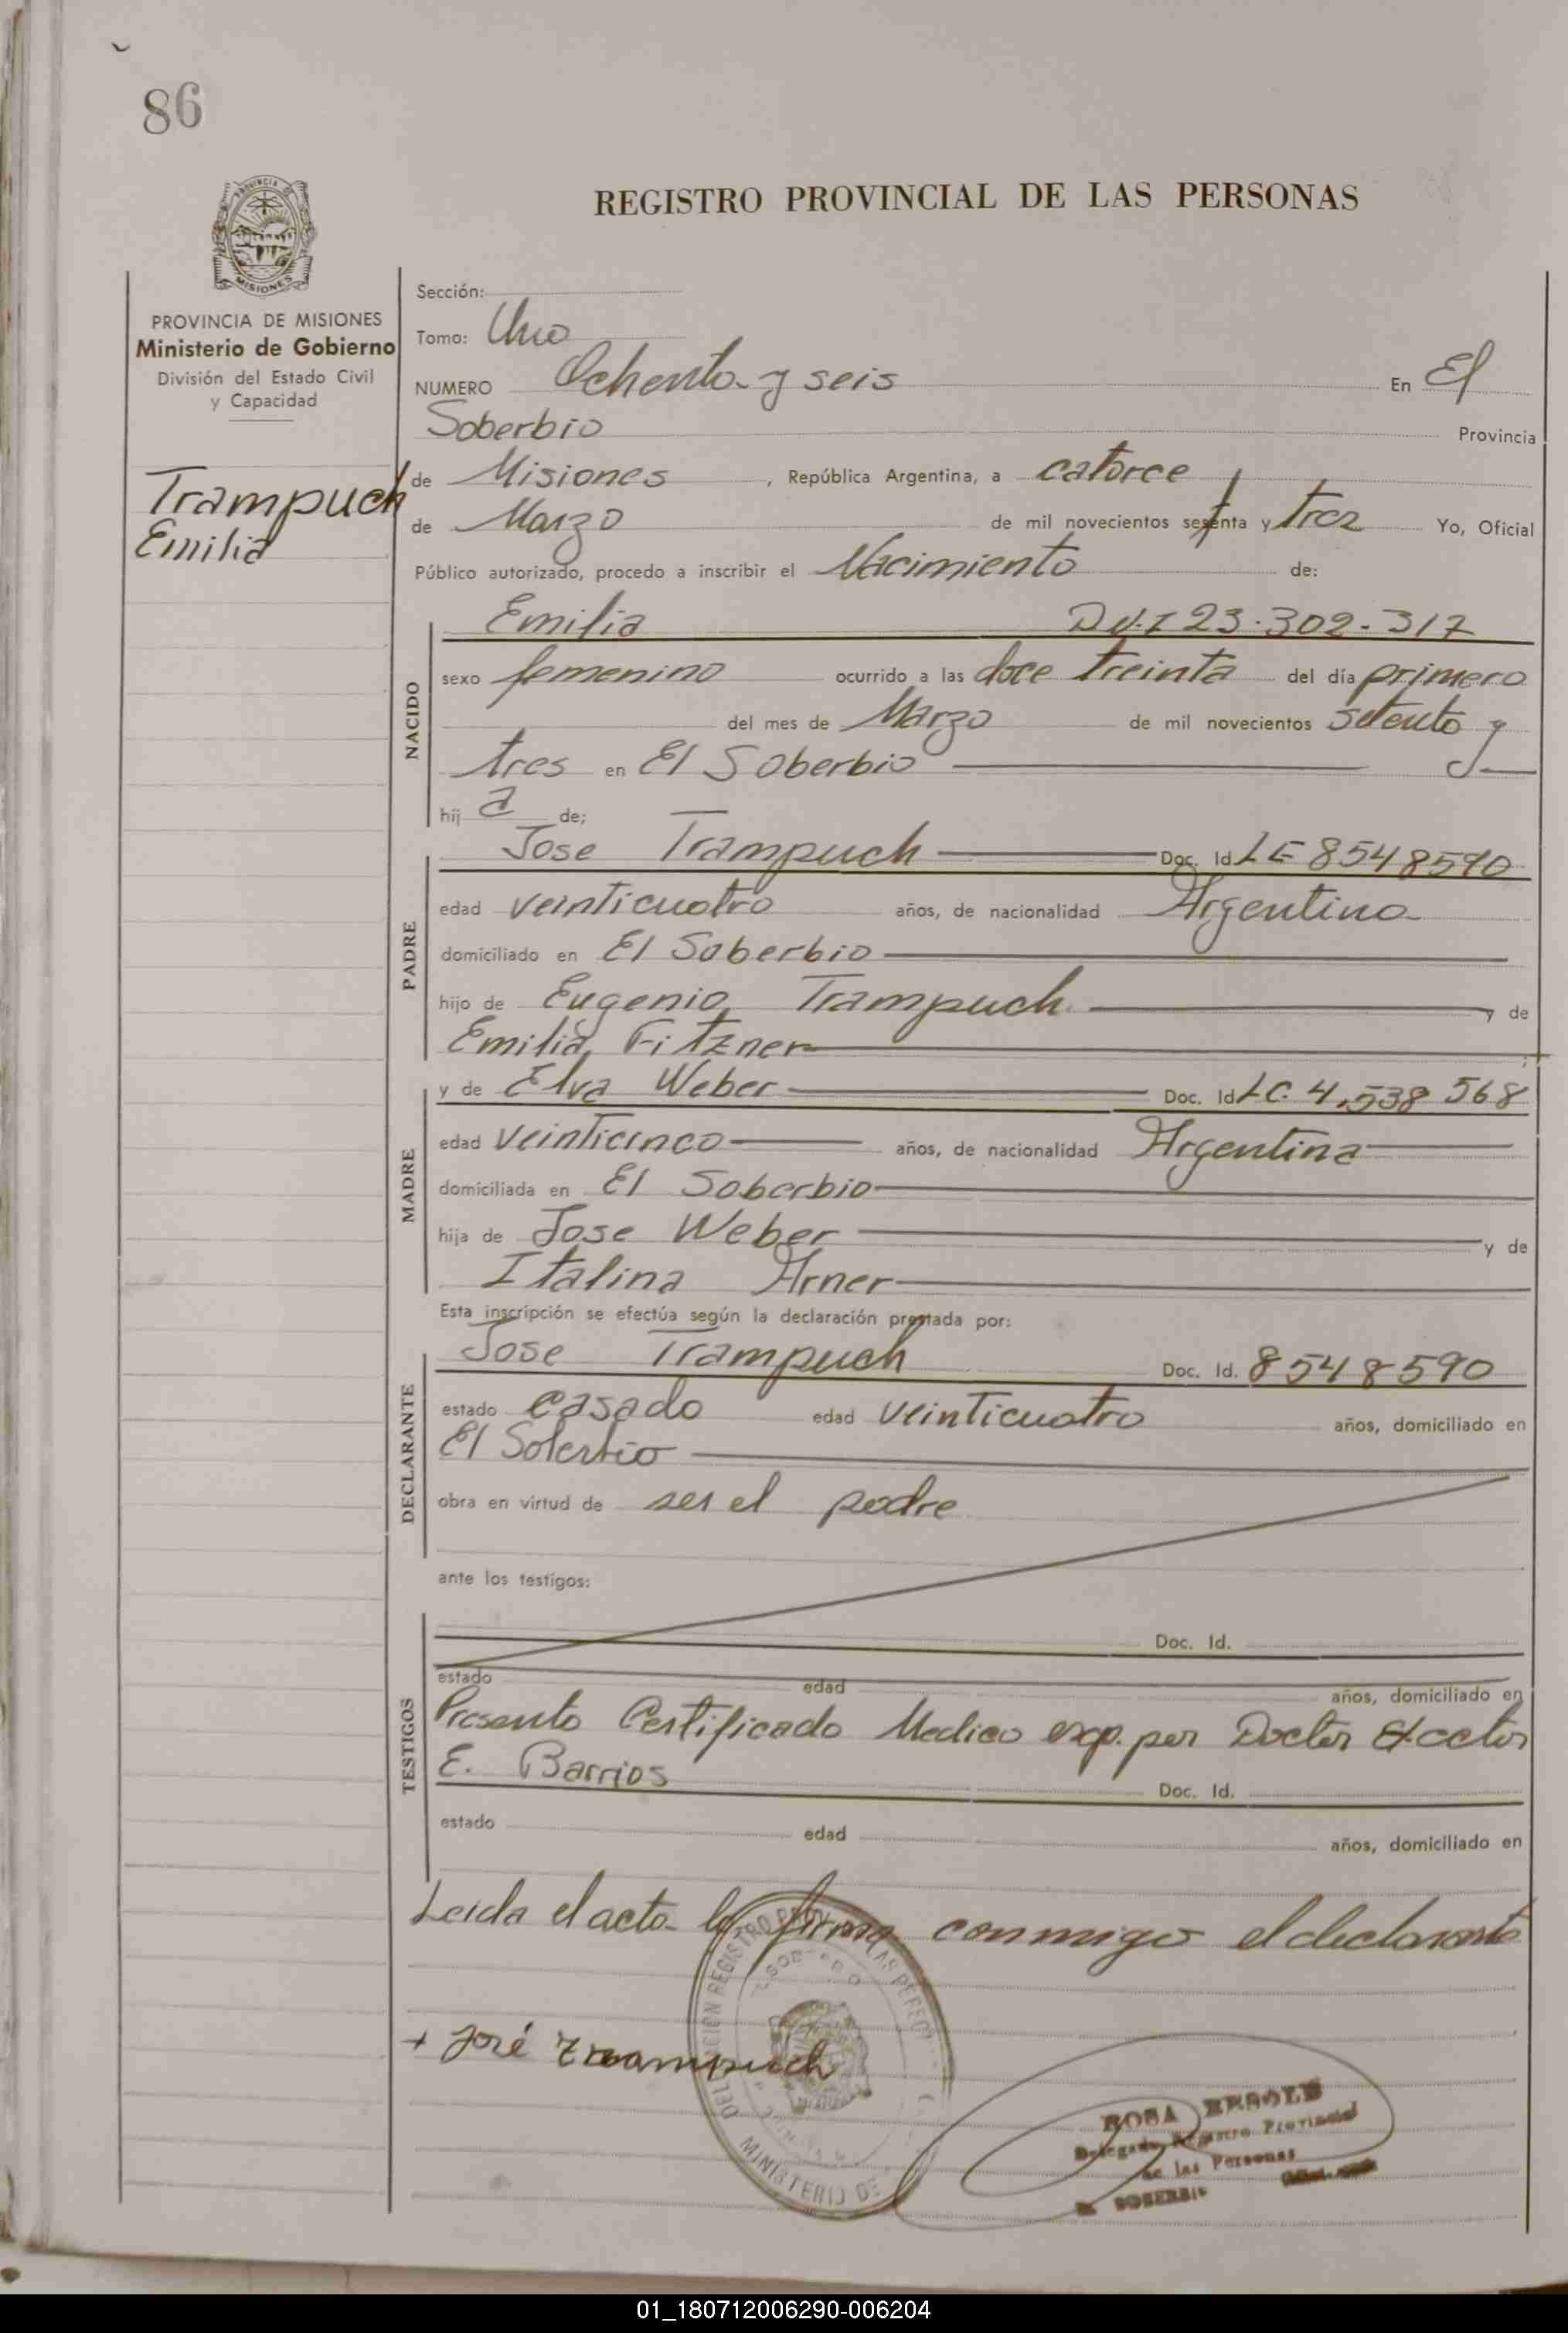 86
REGISTRO PROVINCIAL DE LAS PERSONAS
PROVINCIA DE
MISIONES
PROVINCIA DE MISIONES
Ministerio de Gobierno
División del Estado Civil
y Capacidad
Trampuch
Emilia
Sección:
Tomo: Uno
NUMERO Ochenta y seis En El
Soberbio Provincia
de Misiones , República Argentina, a catorce
de Marzo de mil novecientos setenta y tres Yo, Oficial
Público autorizado, procedo a inscribir el Nacimiento de:
NACIDO
Emilia D.N.I 23.302.317
sexo femenino ocurrido a las doce treinta del día primero
del mes de Marzo de mil novecientos setenta y
tres en El Soberbio
hij a de;
PADRE
Jose Trampuch Doc. Id LE 8548590
edad veinticuatro años, de nacionalidad Argentino
domiciliado en El Soberbio
hijo de Eugenio Trampuch y de
Emilia Fitzner
MADRE
y de Elva Weber Doc. Id LC. 4.538 568
edad veinticinco años, de nacionalidad Argentina
domiciliada en El Soberbio
hija de Jose Weber y de
Italina Arner
Esta inscripción se efectúa según la declaración prestada por:
DECLARANTE
Jose Trampuch Doc. Id. 8548590
estado casado edad veinticuatro años, domiciliado en
El Soberbio
obra en virtud de ser el padre
ante los testigos:
TESTIGOS
Doc. Id.
estado edad años, domiciliado en
Presento Certificado Medico exp. por Doctor
E. Barrios Doc. Id.
estado edad años, domiciliado en
Leida el acta la firma conmigo el declarante
+ José Trampuch
MINISTERIO DE
ROSA
Delegado Registro Provincial
de las Personas
SOBERBIO
01_180712006290-006204